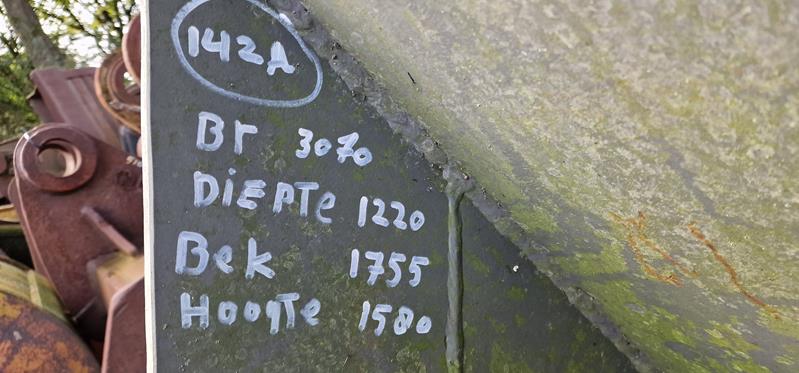 142A
Br 3070
DiEPTe 1220
Bek 1755
HoogTe 1580